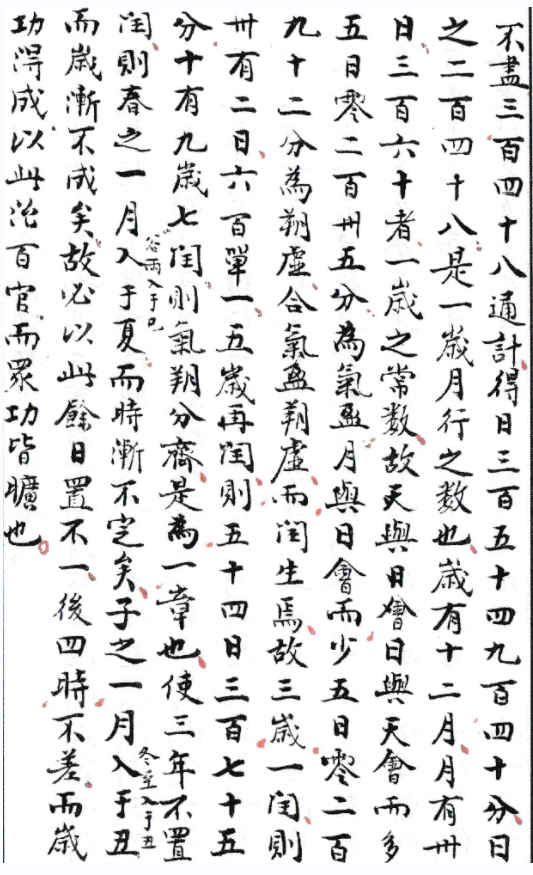 不盡三百四十八通計得日三百五十四九百四十分日
之二百四十八是一歲月行之数也歲有十二月月有卅
日三百六十者一歲之常数故天與日會日與天會而多
五日零二百卅五分為氣盈月與日會而少五日零二百
九十二分為朔虛合氣盈朔虛而閏生焉故三歲一閏則
卅有二日六百單一五歲再閏則五十四日三百七十五
分十有九歲七閏則氣朔分齊是為一章也使三年不置
閏則春之一月入于夏谷雨入于巳而時漸不定矣子之一月入于丑冬至入于丑
而歲漸不成矣故必以此餘日置不一後四時不差而歲
功得成以此治百官而眾功皆曠也